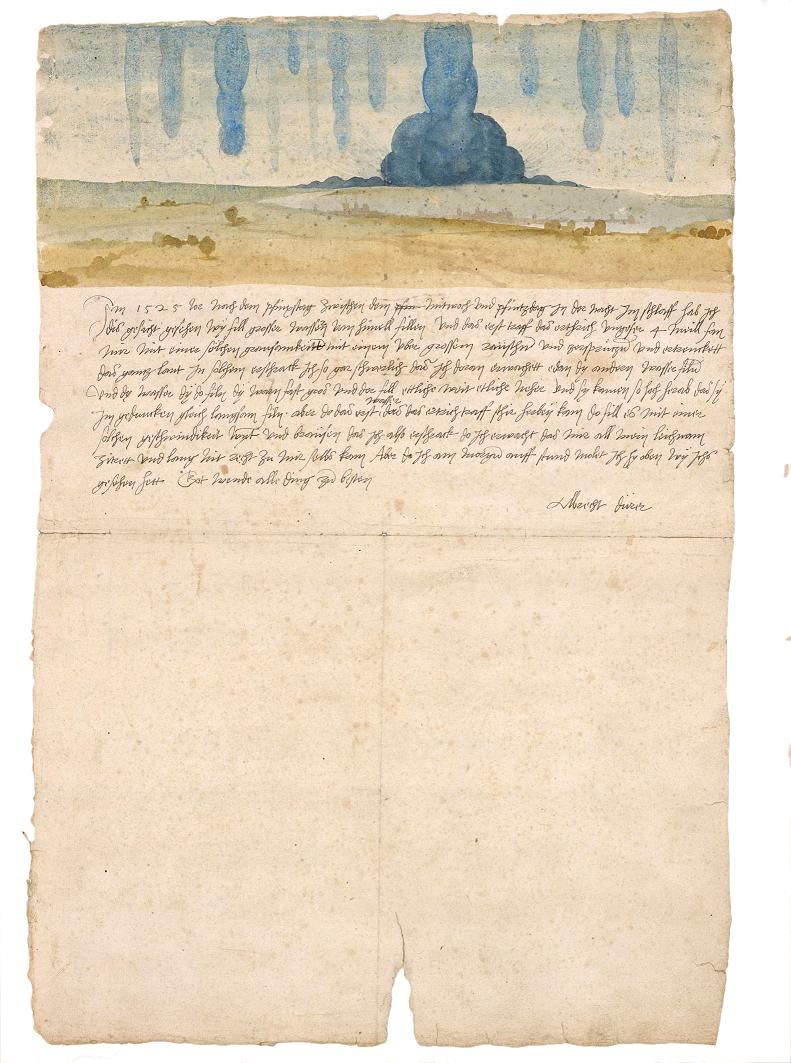 Im 1525 Jor nach dem pfinxstag zwischen dem pfin mitwoch und pfintzdag in der nacht im schlaff hab ich
dis gesicht gesehen wy fill grosser wassern vom himell fillen Und das erst traff das erthrich ungefer 4 meill fan
mir mit einer solchen grausamkeitt mit einem uber grossem raüschn und zersprützn und ertrenckett
das gantz lant In solchem erschrack ich so gar schwerlich das ich doran erwachett edan dy andren wasser filn
Und dy wasser dy do filn dy warn fast gros und der fill ettliche weit etliche neher und sy kamen so hoch herab das sy
im gedancken gleich langsam filn aber do das erst wasser das das ertrich traff schir herbey kam do fill es mit einer
solchen geschwindikeit wynt und braüsen das ich also erschrack do ich erwacht das mir all mein leichnam
zitrett und lang nit recht zu mir selbs kam Aber do ich am morgn auff stund molet ich hy oben wy ichs
gesehen hett Got wende alle ding zu besten
Albrecht dürer